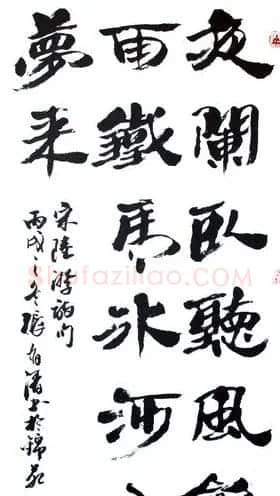 夜闌臥聽風
雨鐵馬冰河
夢来
宋陸游詞
丙戌
Shufaziliao.com